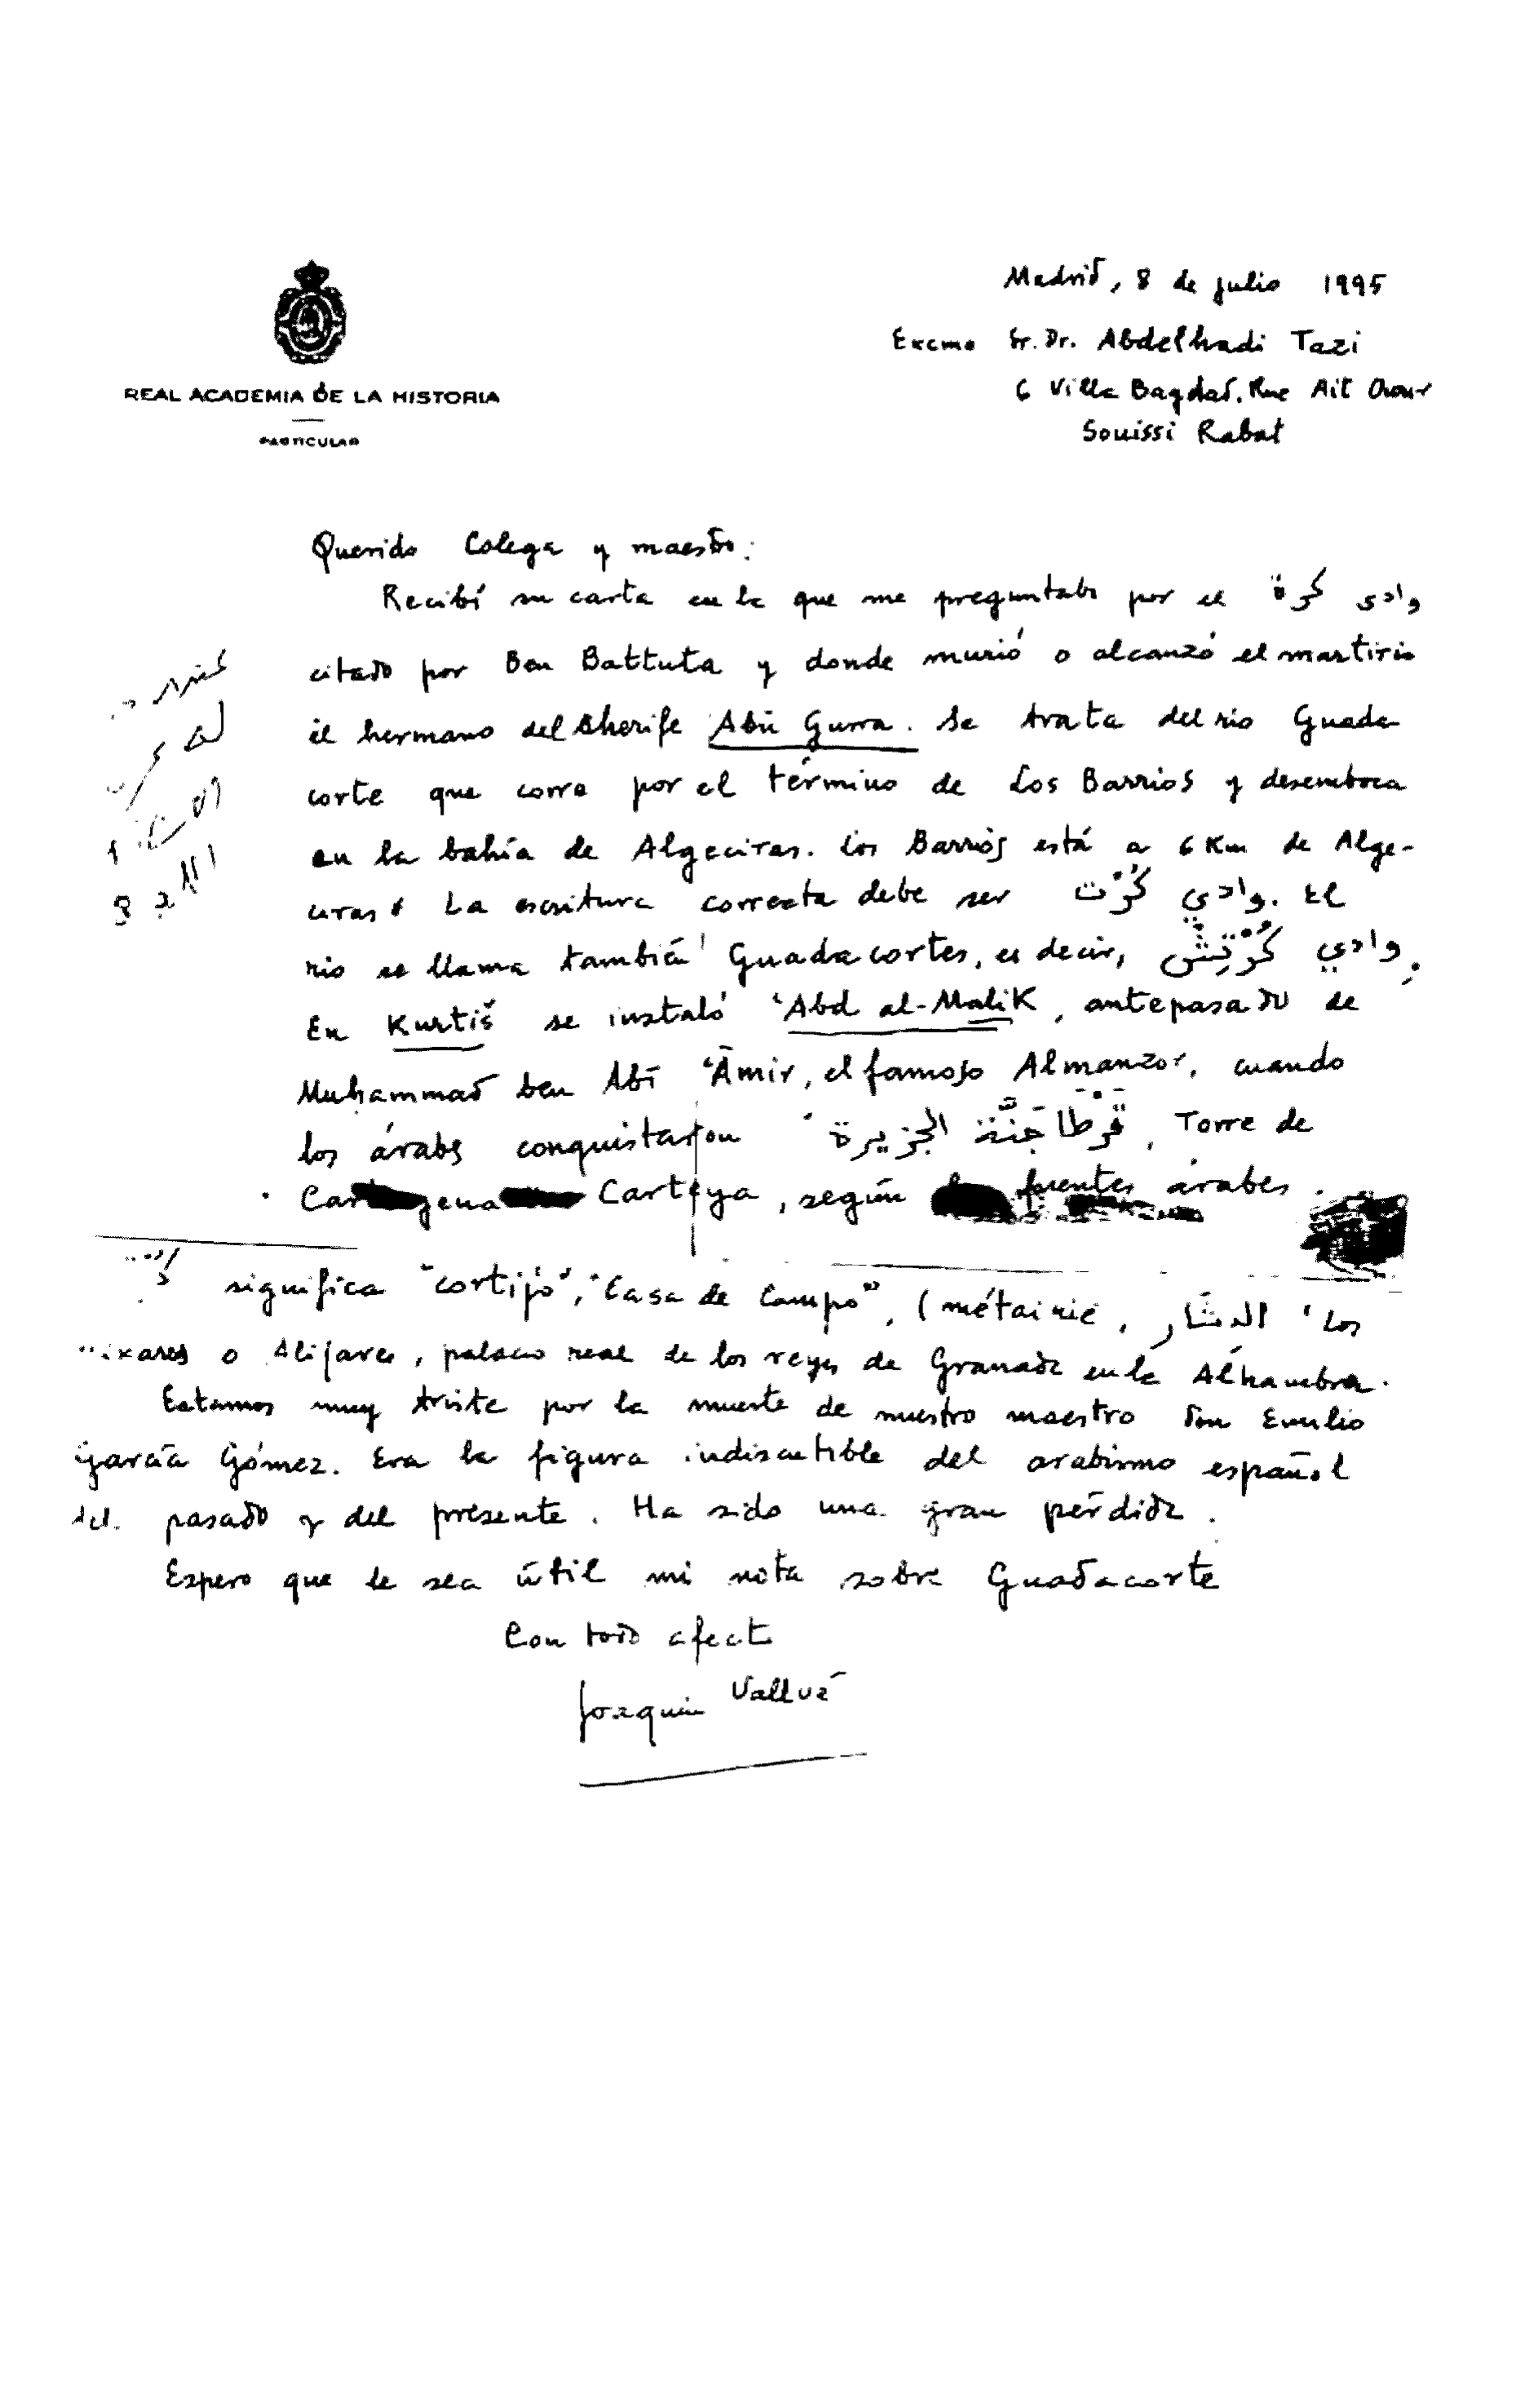 REAL ACADEMIA DE LA HISTORIA
PARTICULAR
Madrid, 8 de julio 1995
Excmo Sr. Dr. Abdelhadi Tazi
6 Villa Bagdad. Rue Ait
Souissi Rabat
Querido Colega y maestro:
Recibí su carta en la que me preguntaba por el وادى كرة
citado por Ben Battuta y donde murió o alcanzó el martirio
el hermano del Sherife Abū Gurra. Se trata del río Guada-
corte que corre por el término de Los Barrios y desemboca
en la bahía de Algeciras. Los Barrios está a 6 Km de Alge-
ciras. La escritura correcta debe ser وادي كُرْت. El
río se llama también Guadacortes, es decir, وادي كُرْتِش.
En Kurtiš se instaló ‘Abd al-Malik, antepasado de
Muḥammad ben Abī ‘Āmir, el famoso Almanzor, cuando
los árabes conquistaron قَرْطَاجَنَّة الجزيرة, Torre de
Cartagena Carteya, según fuentes árabes.
significa "cortijo", "Casa de Campo", (métairie, الدشار, Los
o Alijares, palacio real de los reyes de Granada en la Alhambra.
Estamos muy triste por la muerte de nuestro maestro Don Emilio
García Gómez. Era la figura indiscutible del arabismo español
del pasado y del presente. Ha sido una gran pérdida.
Espero que le sea útil mi nota sobre Guadacorte
Con todo afecto
Joaquin Vallvé